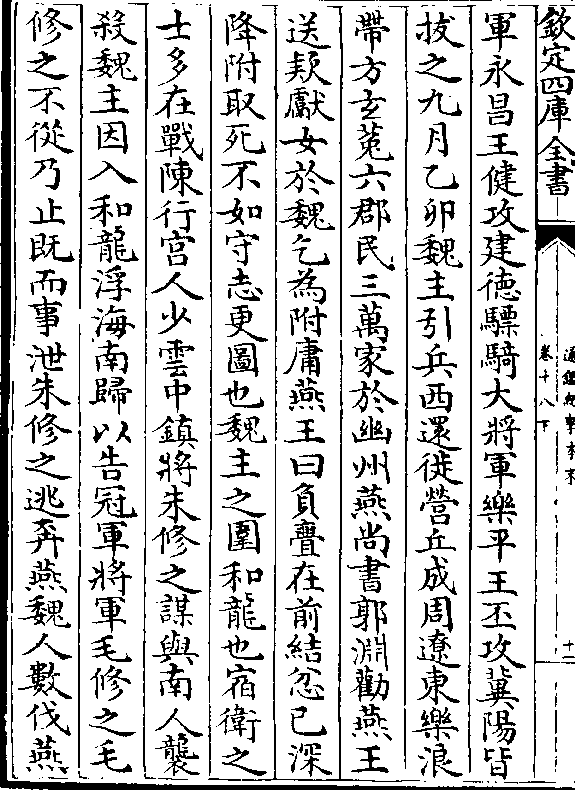 欽定四庫全書
通鑑紀事本末
卷十八下
十二
軍永昌王健攻建徳驃騎大將軍樂平王丕攻冀陽皆
拔之九月乙卯魏主引兵西還徙營丘成周遼東樂浪
帶方玄菟六郡民三萬家於幽州燕尚書郭淵勸燕王
送款獻女於魏乞為附庸燕王曰負釁在前結忿已深
降附取死不如守志更圖也魏主之圍和龍也宿衛之
士多在戰陳行宫人少雲中鎮將朱修之謀與南人襲
殺魏主因入和龍浮海南歸以告冠軍將軍毛修之毛
修之不從乃止既而事泄朱修之逃奔燕魏人數伐燕